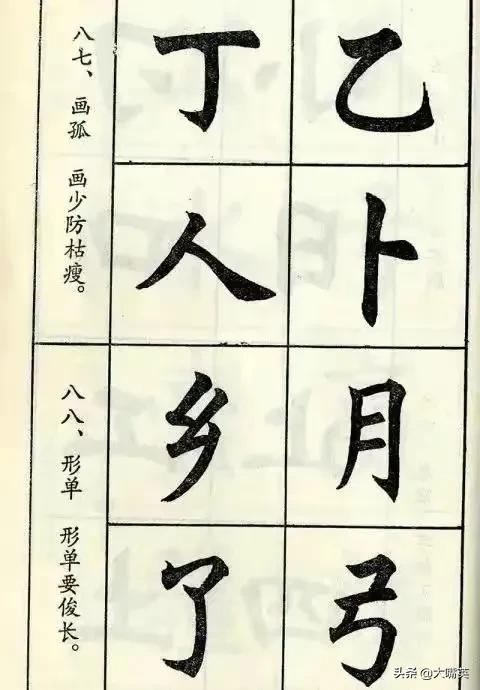 八七、画孤　画少防枯瘦。
乙
丁
卜
人
八八、形单　形单要俊长。
月
乡
弓
了
头条 @大嘴英